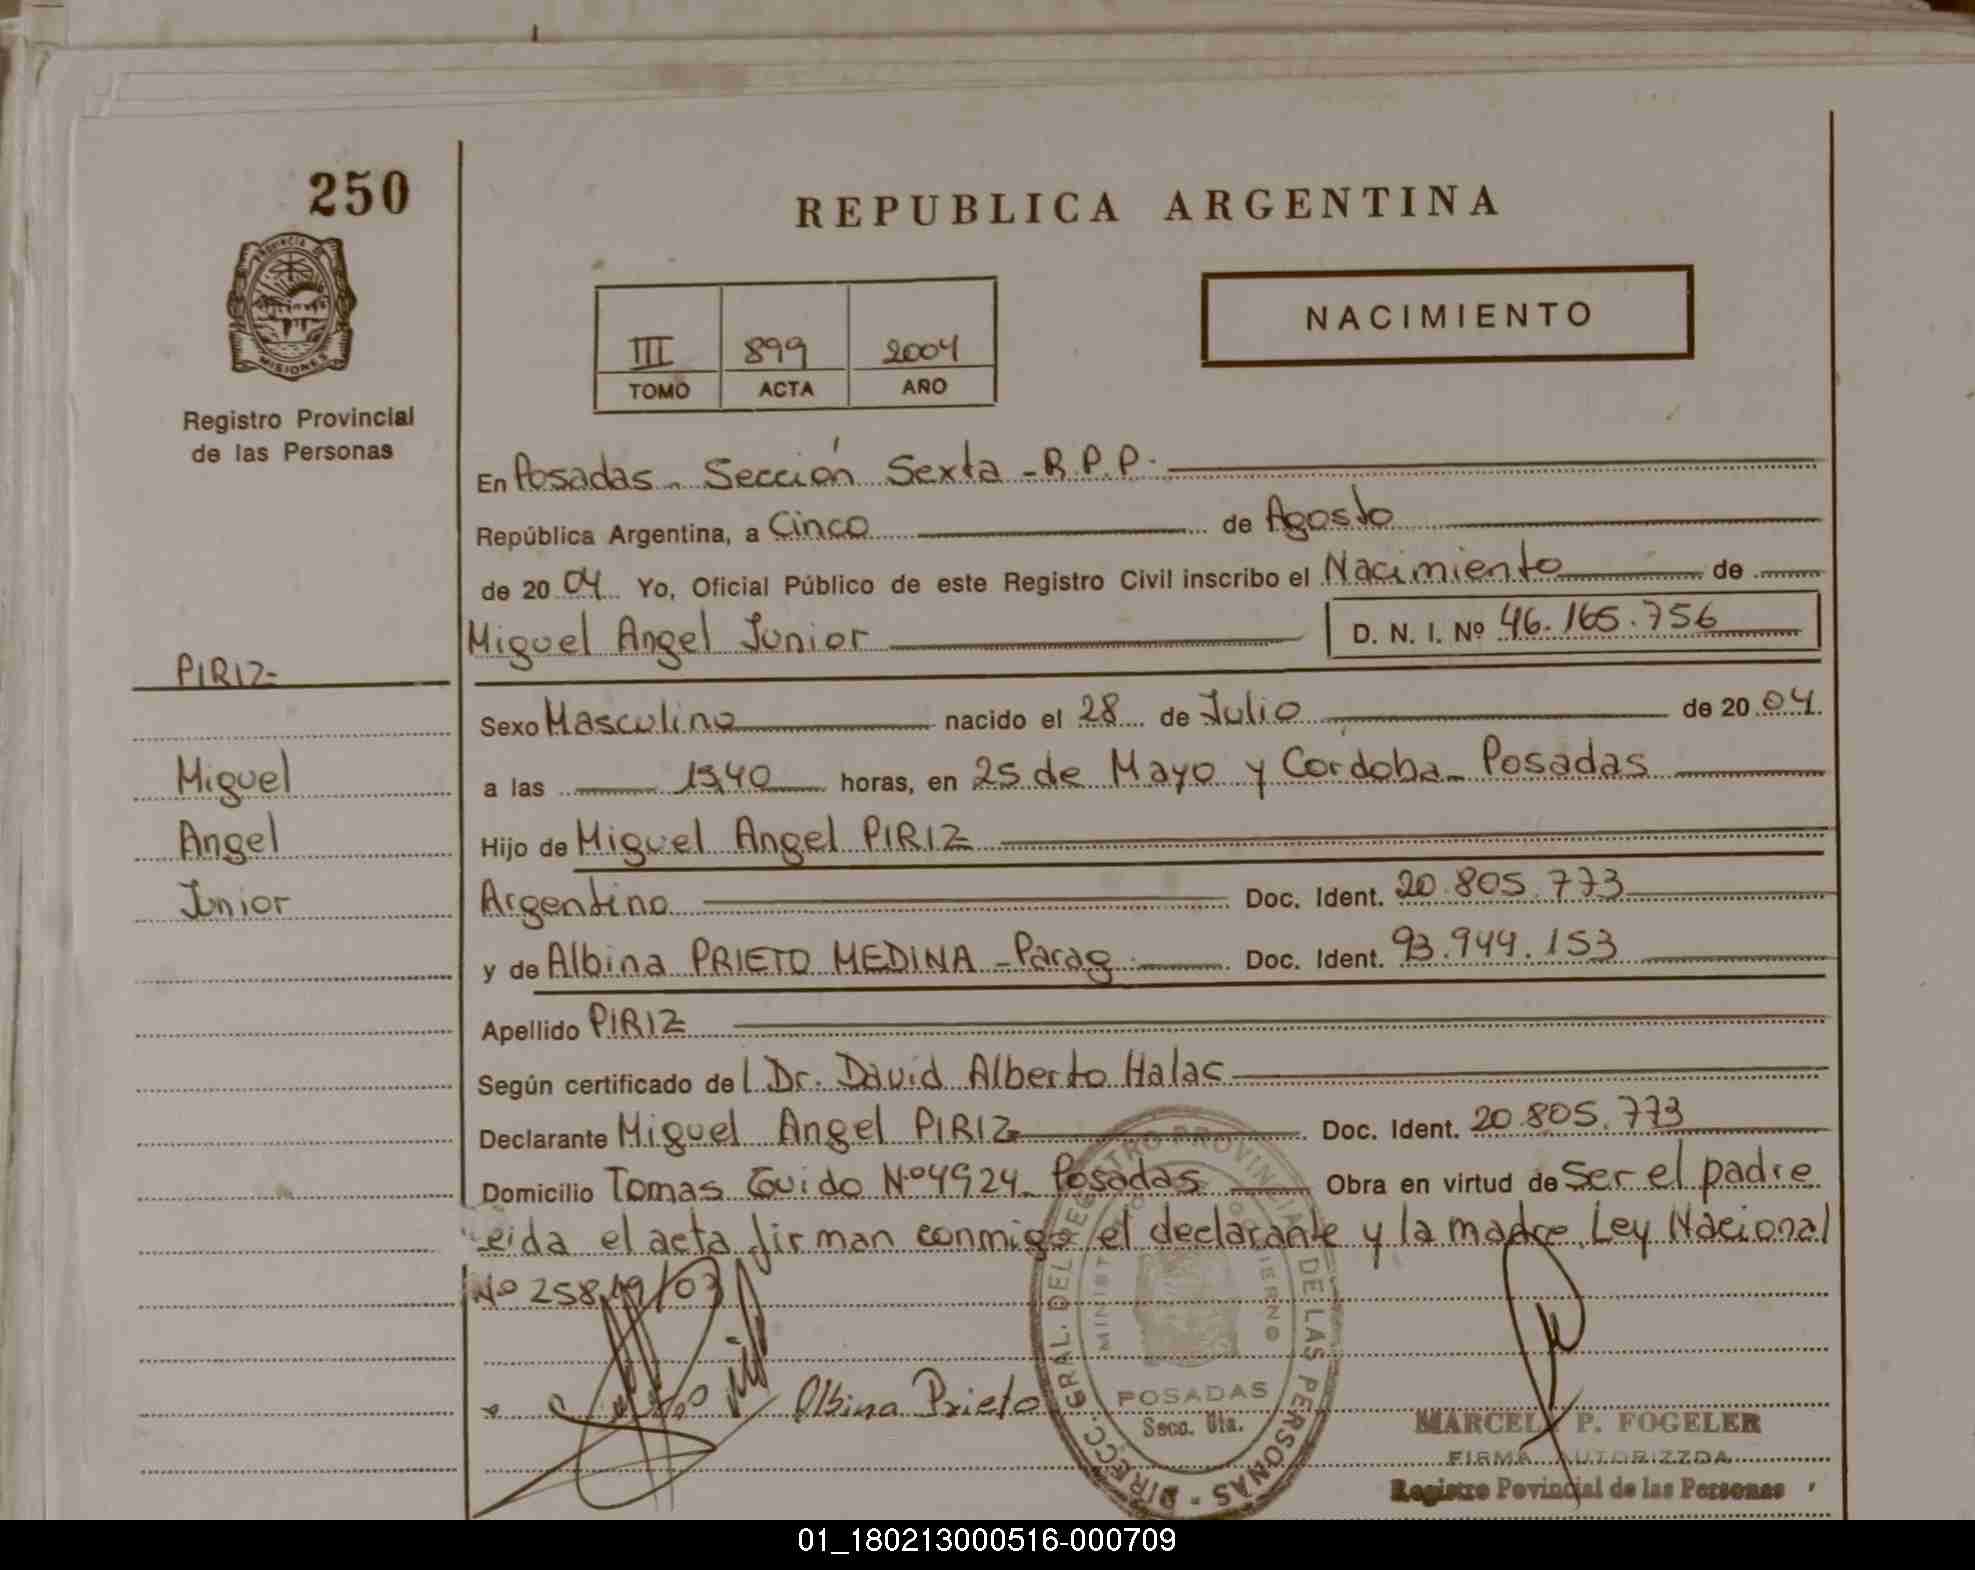 250
PROVINCIA DE
MISIONES
Registro Provincial
de las Personas
REPUBLICA ARGENTINA
III 899 2004
TOMO ACTA AÑO
NACIMIENTO
En Posadas - Sección Sexta - R.P.P.
República Argentina, a Cinco de Agosto
de 20 04 Yo, Oficial Público de este Registro Civil inscribo el Nacimiento de
Miguel Angel Junior D. N. I. Nº 46.165.756
PIRIZ
Sexo Masculino nacido el 28 de Julio de 20 04
Miguel
a las 15,40 horas, en 25 de Mayo y Cordoba - Posadas
Angel
Hijo de Miguel Angel PIRIZ
Junior
Argentino Doc. Ident. 20.805.773
y de Albina PRIETO MEDINA - Parag. Doc. Ident. 93.944.153
Apellido PIRIZ
Según certificado del Dr. David Alberto Halac
Declarante Miguel Angel PIRIZ Doc. Ident. 20.805.773
Domicilio Tomas Guido Nº 4924 - Posadas Obra en virtud de Ser el padre
Leida el acta firman conmigo el declarante y la madre. Ley Nacional
Nº 25819/03
Albina Prieto
DIRECC. GRAL. DEL REGISTRO PROVINCIAL DE LAS PERSONAS
POSADAS
Secc. 6ta.
P. FOGELER
FIRMA AUTORIZZDA
Registro Povincial de las Personas
01_180213000516-000709